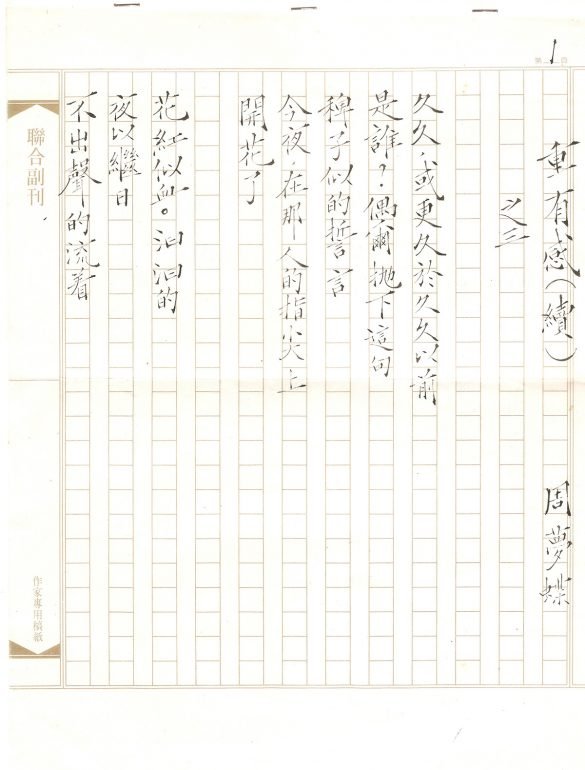 1
重有感(續) 周夢蝶
之三
久久，或更久於久久以前
是誰？偶爾拋下這句
稗子似的誓言
今夜，在那人的指尖上
開花了
花紅似血。汩汩的
夜以繼日
不出聲的流着
聯合副刊
作家專用稿紙